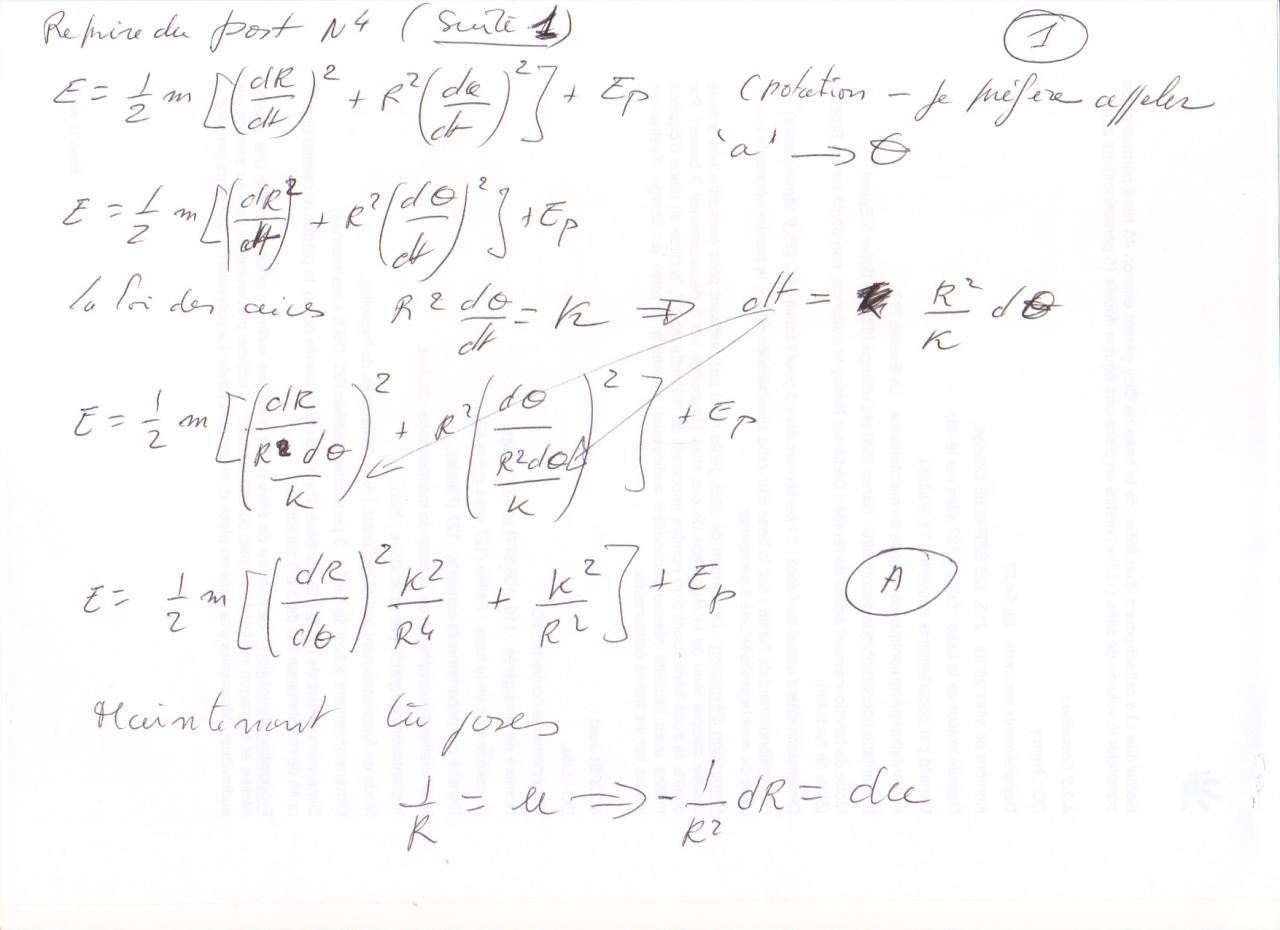 Reprise du post N4 (Suite 1)
1
E = 1/2 m [(dR/dt)² + R²(da/dt)²] + Ep (notation – Je préfère appeler
'a' → θ
E = 1/2 m [(dR/dt)² + R²(dθ/dt)²] + Ep
la loi des aires R² dθ/dt = K ⇒ dt = R²/K dθ
E = 1/2 m [(dR/(R² dθ/K))² + R²(dθ/(R²dθ/K))²] + Ep
E = 1/2 m [(dR/dθ)² K²/R⁴ + K²/R²] + Ep A
Maintenant tu poses
1/R = u ⇒ - 1/R² dR = du